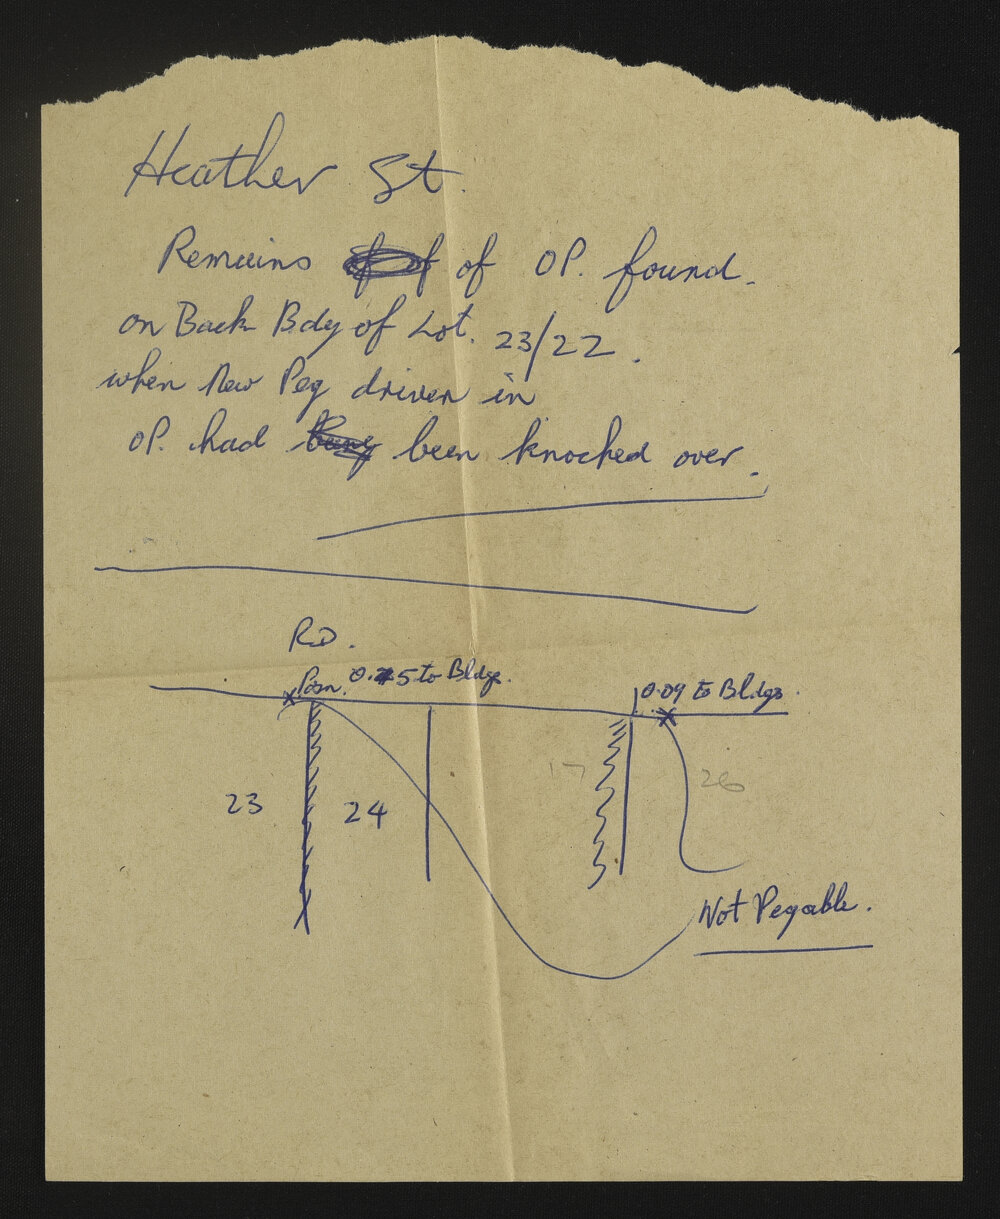 Heather St
Remains of OP. found.
on Back Bdy of Lot. 23/22.
when New Peg driven in
OP. had been knocked over.
RD.
Posn. 0.5 to Bldge.
0.09 to Bldgs.
17
26
23
24
Not Pegable.